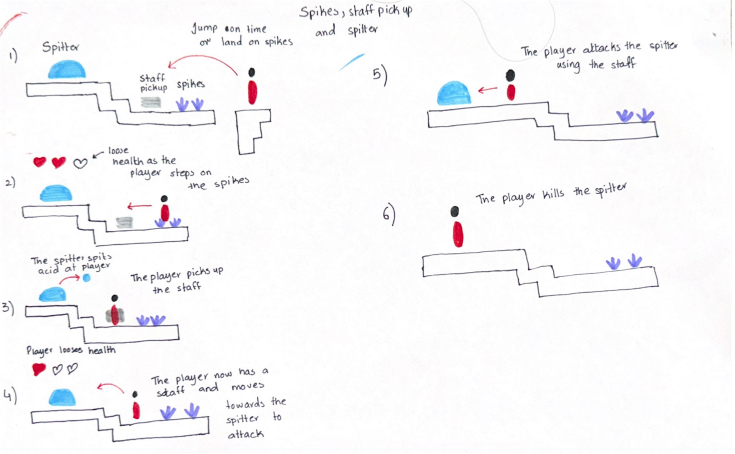 Spikes, staff pick up
and spitter
1)
Spitter
Jump on time
or land on spikes
Staff
pickup
spikes
loose
health as the
player steps on
the spikes
2)
The spitter spits
acid at player
The player picks up
the staff
3)
Player looses health
4)
The player now has a
staff and moves
towards the
spitter to
attack
5)
The player attacks the spitter
using the staff
6)
The player kills the spitter